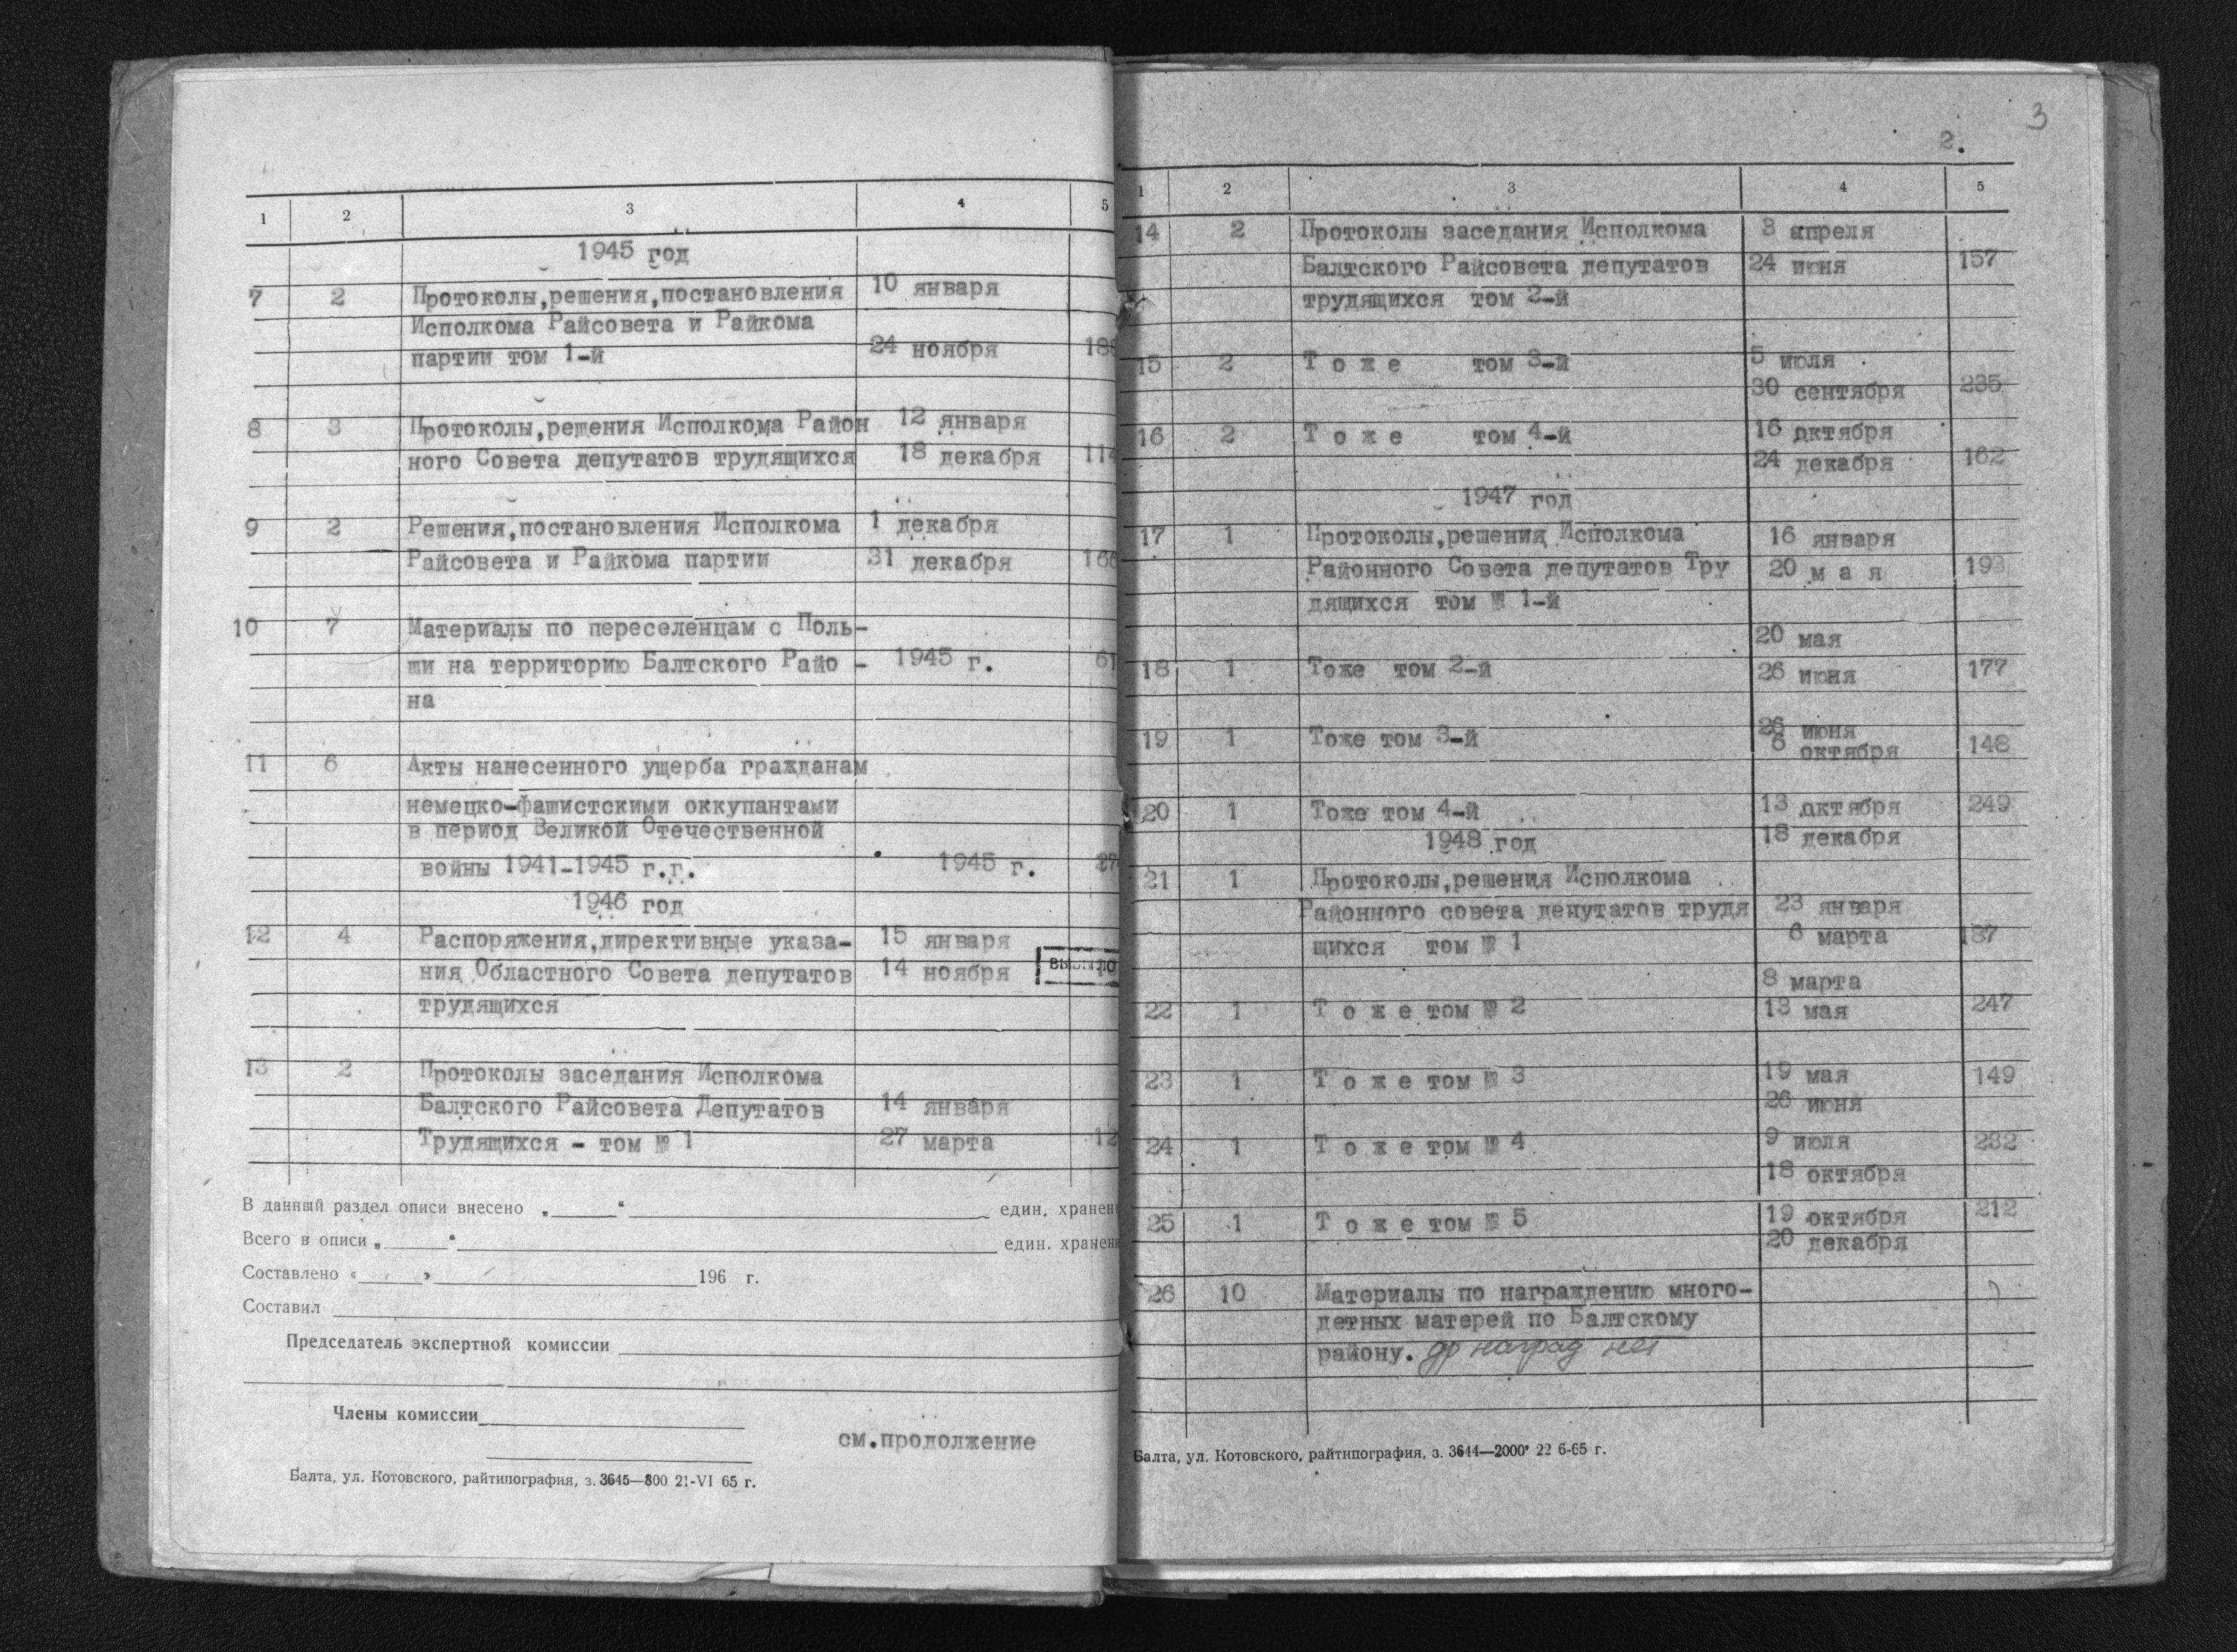 1 2 3 4 5
1945 год
7 2 Протоколы,решения,постановления 10 января
Исполкома Райсовета и Райкома
партии том 1-й 24 ноября
8 3 Протоколы,решения Исполкома Район 12 января
ного Совета депутатов трудящихся 18 декабря 114
9 2 Решения,постановления Исполкома 1 декабря
Райсовета и Райкома партии 31 декабря 166
10 7 Материалы по переселенцам с Поль-
ши на территорию Балтского Райо - 1945 г. 61
на
11 6 Акты нанесенного ущерба гражданам
немецко-фашистскими оккупантами
в период Великой Отечественной
войны 1941-1945 г.г. 1945 г. 27
1946 год
12 4 Распоряжения,директивные указа- 15 января
ния Областного Совета депутатов 14 ноября
трудящихся
13 2 Протоколы заседания Исполкома
Балтского Райсовета Депутатов 14 января
Трудящихся - том № 1 27 марта 12
В данный раздел описи внесено „ “ един. хранен
Всего в описи „ “ един. хранен
Составлено « » 196 г.
Составил
Председатель экспертной комиссии
Члены комиссии
см.продолжение
Балта, ул. Котовского, райтипография, з. 3645—800 21-VI 65 г.
3
2.
1 2 3 4 5
14 2 Протоколы заседания Исполкома 3 апреля
Балтского Райсовета депутатов 24 июня 157
трудящихся том 2-й
15 2 Т о ж е том 3-й 5 июля
30 сентября 235
16 2 Т о ж е том 4-й 16 октября
24 декабря 162
1947 год
17 1 Протоколы,решения Исполкома 16 января
Районного Совета депутатов Тру 20 м а я 193
дящихся том № 1-й
20 мая
18 1 Тоже том 2-й 26 июня 177
19 1 Тоже том 3-й 26 июня
6 октября 148
20 1 Тоже том 4-й 13 октября 249
1948 год 18 декабря
21 1 Протоколы,решения Исполкома
Районного совета депутатов трудя 23 января
щихся том № 1 6 марта 187
8 марта
22 1 Т о ж е том № 2 13 мая 247
23 1 Т о ж е том № 3 19 мая 149
26 июня
24 1 Т о ж е том № 4 9 июля 232
18 октября
25 1 Т о ж е том № 5 19 октября 212
20 декабря
26 10 Материалы по награждению много-
детных матерей по Балтскому
району. др наград нет
Балта, ул. Котовского, райтипография, з. 3644—2000 22 6-65 г.